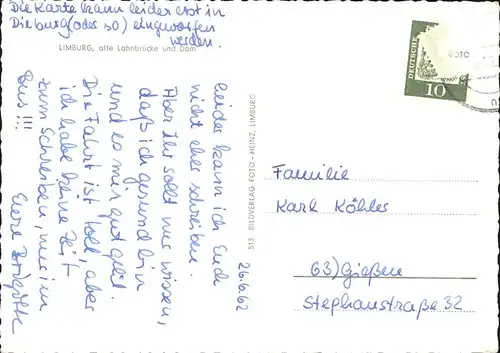 Die Karte kann leider erst in
Dieburg (oder so) eingworfen
werden.
LIMBURG, alte Lahnbrücke und Dom
26.6.62
leider kann ich Euch
nicht eher schreiben.
Aber Ihr sollt nur wissen,
daß ich gesund bin
und es mir gut geht.
Die Fahrt ist toll, aber
ich habe keine Zeit
zum Schreiben, nur im
Bus!!!
Eure Brigitte
515 BILDVERLAG FOTO - HEINZ, LIMBURG
DEUTSCHE
10
Familie
Karl Köhler
63) Gießen
Stephanstraße 32